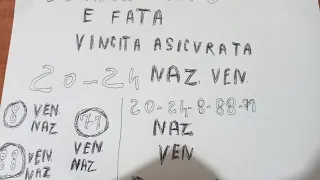 E FATA
VINCITA ASICURATA
20-24 NAZ VEN
8 VEN
NAZ
77
VEN
NAZ
88 VEN
NAZ
20-24-8-88-77
NAZ
VEN